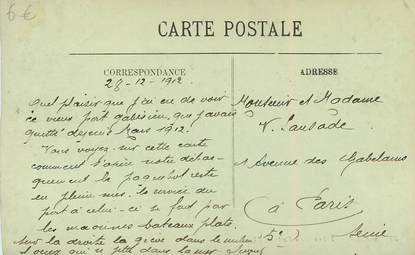 6 €
CARTE POSTALE
CORRESPONDANCE
ADRESSE
28-12-1912
Quel plaisir que j'ai eu de voir
ce vieux port gabésien, que j'avais
quitté depuis Mars 1912.
Vous voyez sur cette carte
comment s'opère notre débar-
quement le paquebot reste
en pleine mer. le service du
port à celui-ci se fait par
les maounes bateaux plats.
Sur la droite la grève dans le milieu
l'oued qui se jette dans la mer
Monsieur et Madame
V. Lansade
1 Avenue des Gobelins
à Paris
5e
Seine